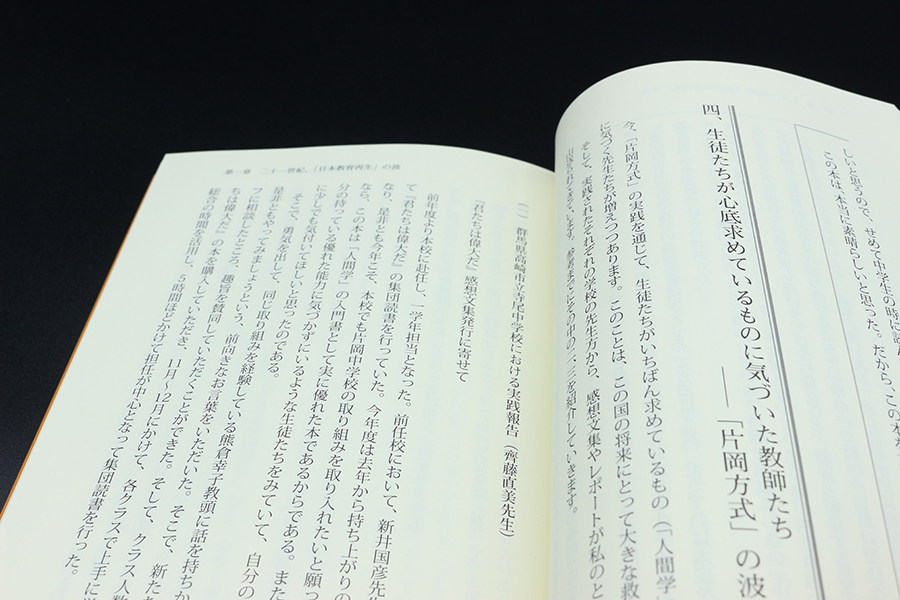 しいと思うので、せめて中学生の時に読ん
この本は、本当に素晴らしいと思った。だから、この本
四、生徒たちが心底求めているものに気づいた教師たち
――「片岡方式」の波
今、「片岡方式」の実践を通じて、生徒たちがいちばん求めているもの（「人間学
に気づく先生たちが増えつつあります。このことは、この国の将来にとって大きな救
そして、実践されたそれぞれの学校の先生方から、感想文集やレポートが私のと
に寄せられてきています。参考までにその中の二、三を紹介していきます。
第一章　二十一世紀、「日本教育再生」の波
（一）群馬県高崎市立寺尾中学校における実践報告（齊藤直美先生）
『君たちは偉大だ』感想文集発行に寄せて
前年度より本校に赴任し、一学年担当となった。前任校において、新井国彦先生
て『君たちは偉大だ』の集団読書を行っていた。今年度は去年から持ち上がりの
なり、是非とも今年こそ、本校でも片岡中学校の取り組みを取り入れたいと願っ
なら、この本は「人間学」の入門書として実に優れた本であるからである。また
分の持っている優れた能力に気づかずにいるような生徒たちをみていて、自分の
に少しでも気付いてほしいと思ったのである。
そこで、勇気を出して、同じ取り組みを経験している熊倉幸子教頭に話を持ちか
是非ともやってみましょうという、前向きなお言葉をいただいた。そこで、新た
フに相談したところ、趣旨を賛同していただくことができた。そして、クラス人数
ちは偉大だ』の本を購入していただき、11月～12月にかけて、各クラスで上手に学
総合の時間を活用し、5時間ほどかけて担任が中心となって集団読書を行った。